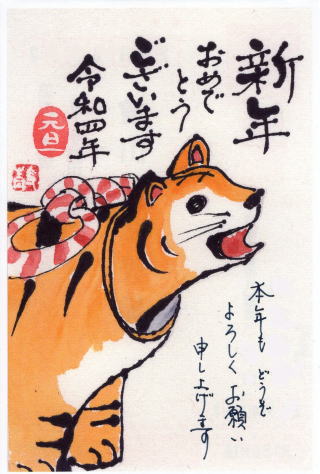 新年
おめでとう
ございます
令和四年
元旦
本年も どうぞ
よろしく お願い
申し上げます